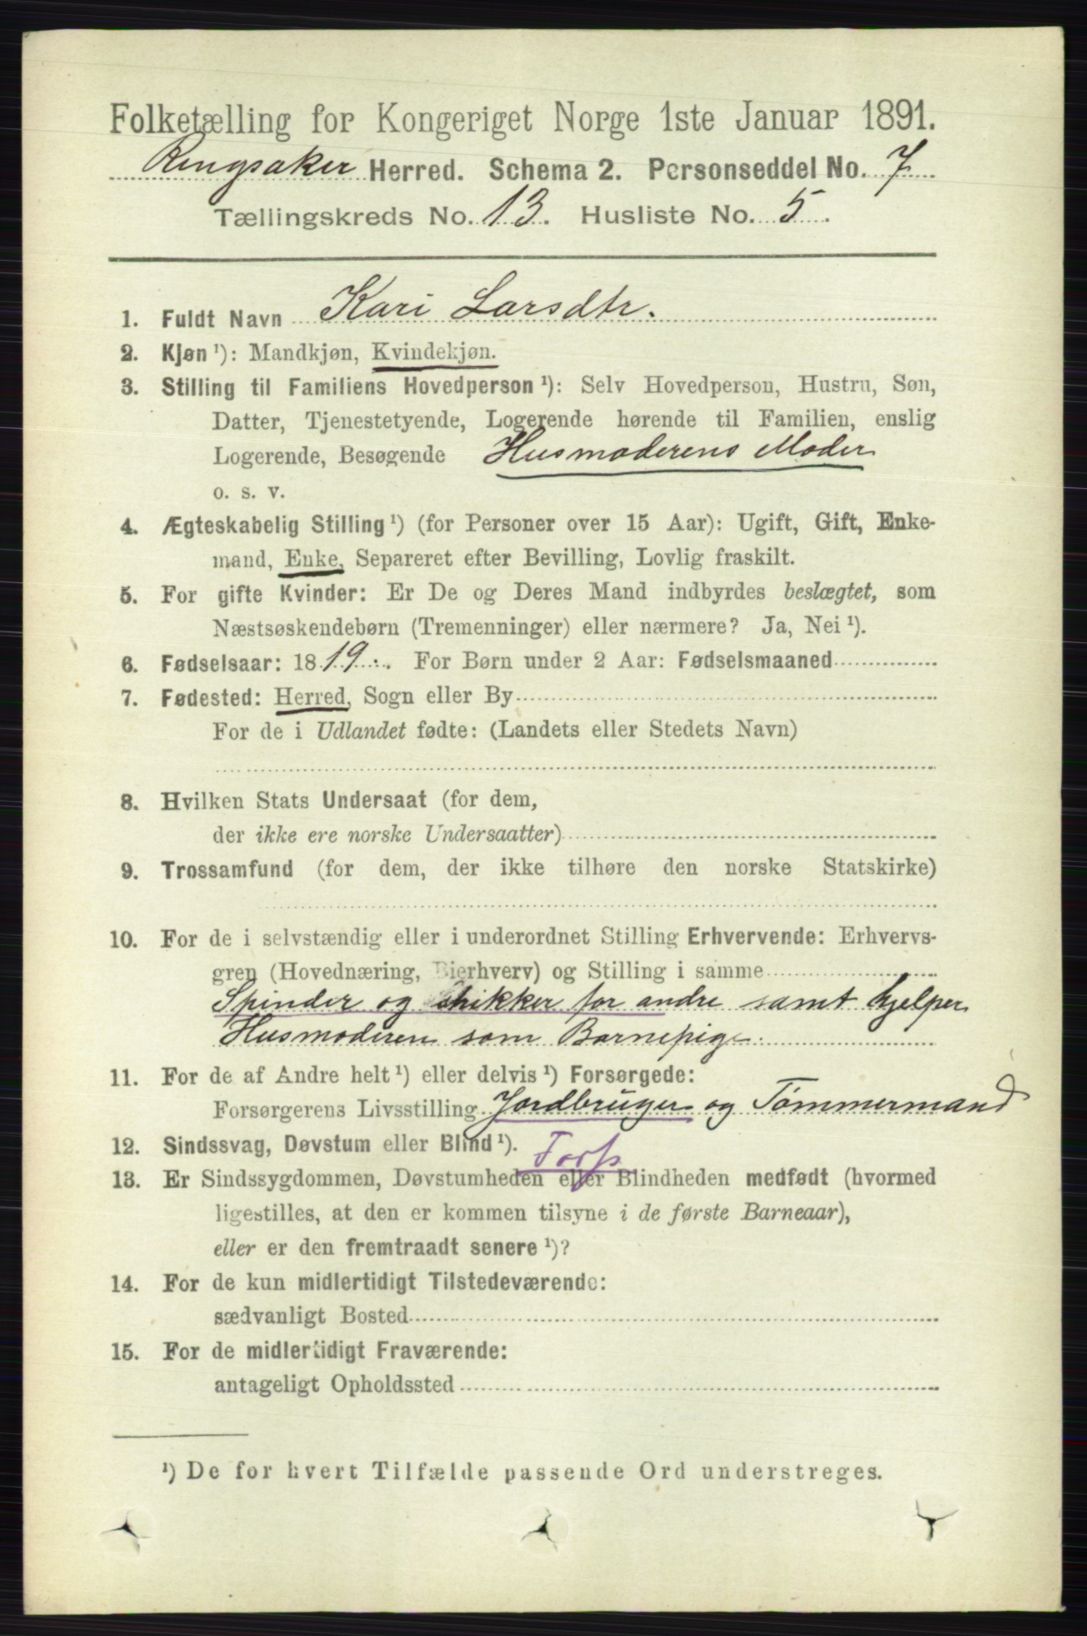 Folketælling for Kongeriget Norge 1ste Januar 1891.
Ringsaker Herred. Schema 2. Personseddel No. 7
Tællingskreds No. 13. Husliste No. 5.
1. Fuldt Navn Kari Larsdtr.
2. Kjøn ¹): Mandkjøn, Kvindekjøn.
3. Stilling til Familiens Hovedperson ¹): Selv Hovedperson, Hustru, Søn,
Datter, Tjenestetyende, Logerende hørende til Familien, enslig
Logerende, Besøgende Husmoderens Moder
o. s. v.
4. Ægteskabelig Stilling ¹) (for Personer over 15 Aar): Ugift, Gift, Enke-
mand, Enke, Separeret efter Bevilling, Lovlig fraskilt.
5. For gifte Kvinder: Er De og Deres Mand indbyrdes beslægtet, som
Næstsøskendebørn (Tremenninger) eller nærmere? Ja, Nei ¹).
6. Fødselsaar: 1819. For Børn under 2 Aar: Fødselsmaaned
7. Fødested: Herred, Sogn eller By
For de i Udlandet fødte: (Landets eller Stedets Navn)
8. Hvilken Stats Undersaat (for dem,
der ikke ere norske Undersaatter)
9. Trossamfund (for dem, der ikke tilhøre den norske Statskirke)
10. For de i selvstændig eller i underordnet Stilling Erhvervende: Erhvervs-
gren (Hovednæring, Bierhverv) og Stilling i samme
Spinder og strikker for andre samt hjelper
Husmoderen som Barnepige.
11. For de af Andre helt ¹) eller delvis ¹) Forsørgede:
Forsørgerens Livsstilling Jordbruger og Tømmermand
12. Sindssvag, Døvstum eller Blind ¹).
13. Er Sindssygdommen, Døvstumheden eller Blindheden medfødt (hvormed
ligestilles, at den er kommen tilsyne i de første Barneaar),
eller er den fremtraadt senere ¹)?
14. For de kun midlertidigt Tilstedeværende:
sædvanligt Bosted
15. For de midlertidigt Fraværende:
antageligt Opholdssted
¹) De for hvert Tilfælde passende Ord understreges.